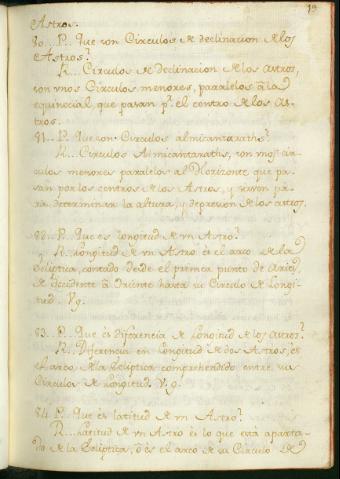 19
Astros.
80.. P.. Que son Circulos de declinacion de los
Astros?
R... Circulos de declinacion de los astros,
son vnos Circulos menores, paralelos â la
equinocial, que pasan pr. el centro de los As-
tros.
81.. P.. Que son Circulos almicantaraths?
R... Circulos Almicantaraths, son vnos cir-
culos menores paralelos al Horizonte, que pa-
san por los centros de los Astros, y sirven pa-
ra determinar la altura, y depresion de los astros.
82.. P.. Que es longitud de vn Astro?
R.. Longitud de vn Astro es el arco de la
Ecliptica, contado desde el primer punto de Aries,
de occidente â Oriente hasta su Circulo de Longi-
tud. Vg.
83.. P.. Que es diferencia de Longitud de los Astros?
R.. Diferencia en Longitud de dos Astros, es
el arco de la Ecliptica comprehendido entre sus
Circulos de Longitud. V.g.
84.. P.. Que es latitud de vn Astro?
R... Latitud de vn Astro es lo que está aparta-
do de la Ecliptica, ô es el arco de su Circulo de